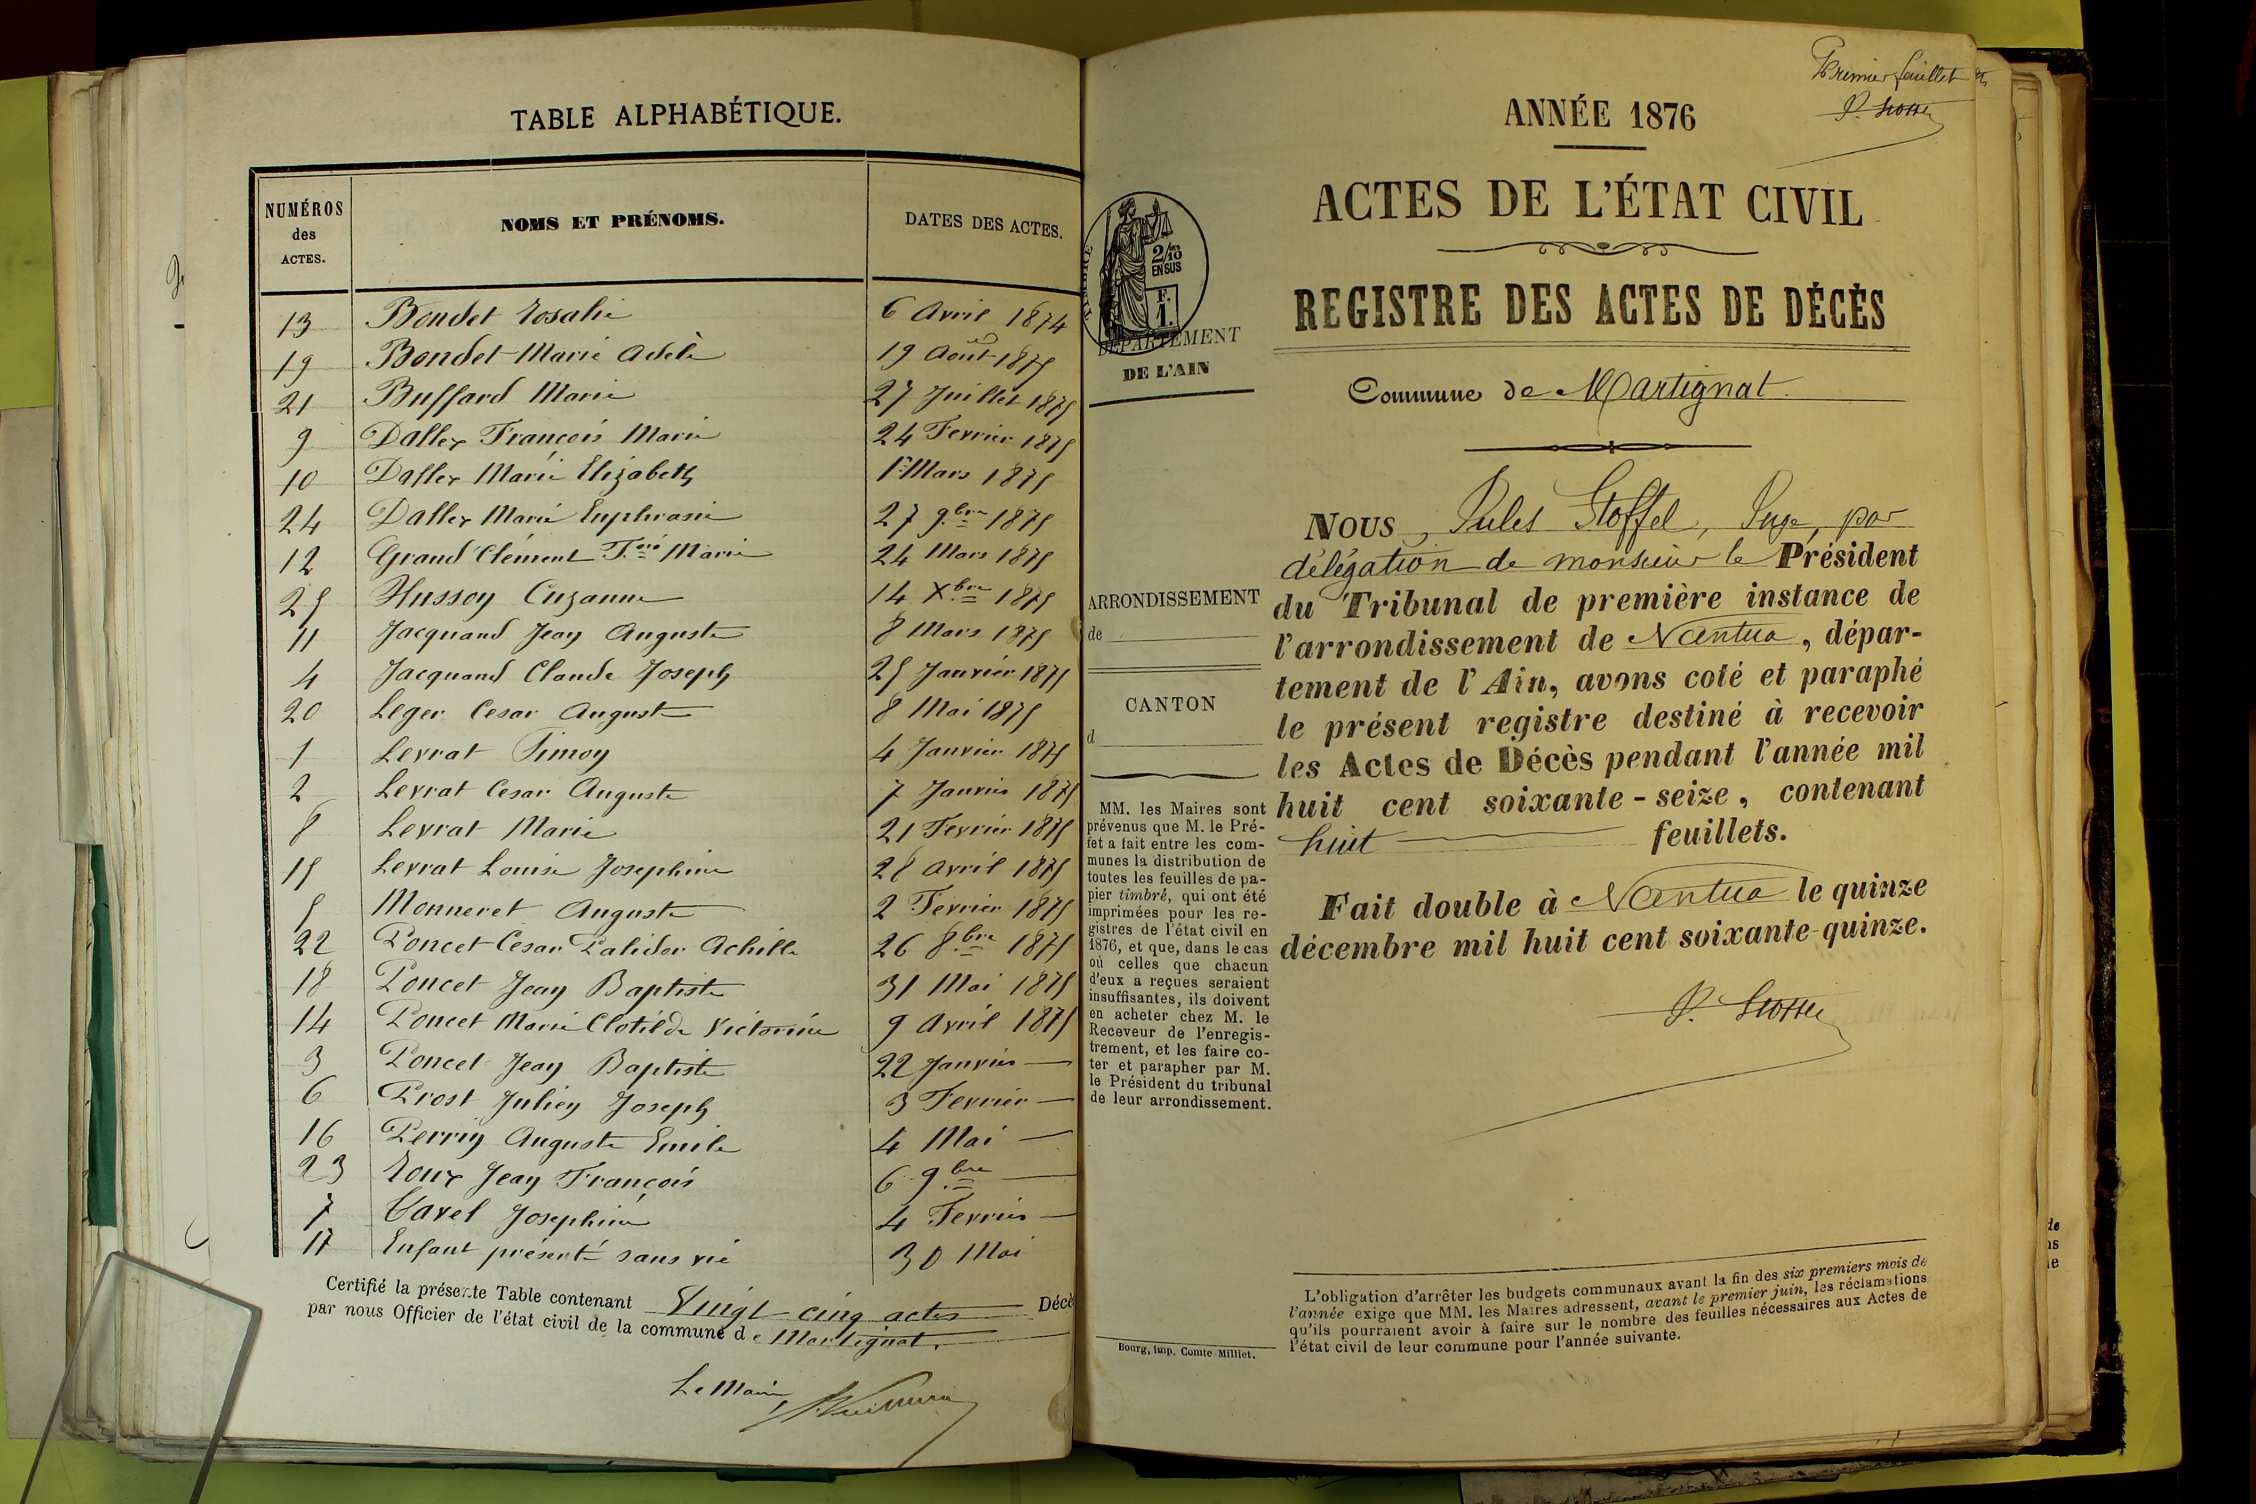 TABLE ALPHABÉTIQUE.
NUMÉROS des ACTES. NOMS ET PRÉNOMS. DATES DES ACTES.
13 Bondet Rosalie 6 Avril 1874
19 Bondet Marie Adele 19 Août 1875
21 Buffard Marie 27 Juillet 1875
9 Daller François Marie 24 Fevrier 1875
10 Daller Marie Elizabeth 1er Mars 1875
24 Daller Marie Euphrasie 27 9bre 1875
12 Grand Clément Marie 24 Mars 1875
25 Hussoy Cuzanne 14 Xbre 1875
11 Jacquand Jean Auguste 8 Mars 1875
4 Jacquand Claude Joseph 25 Janvier 1875
20 Leger Cesar Auguste 8 Mai 1875
1 Levrat Simon 4 Janvier 1875
2 Levrat Cesar Auguste 7 Janvier 1875
8 Levrat Marie 21 Fevrier 1875
15 Levrat Louise Josephine 28 Avril 1875
5 Monneret Auguste 2 Fevrier 1875
22 Poncet Cesar Palidor Achille 26 8bre 1875
18 Poncet Jean Baptiste 31 Mai 1875
14 Poncet Marie Clotilde Victorine 9 Avril 1875
3 Poncet Jean Baptiste 22 Janvier —
6 Prost Julien Joseph 3 Fevrier —
16 Perrin Auguste Emile 4 Mai —
23 Roux Jean François 6 9bre —
7 Tavel Josephine 4 Fevrier —
17 Enfant présenté sans vie 30 Mai
Certifié la présente Table contenant Vingt-cinq actes Décè
par nous Officier de l'état civil de la commune de Martignat.
Le Maire,
Premier feuillet
ANNÉE 1876
ACTES DE L'ÉTAT CIVIL
REGISTRE DES ACTES DE DÉCÈS
Commune de Martignat
TIMBRE
2/10 EN SUS
F. 1.
DÉPARTEMENT
DE L'AIN
ARRONDISSEMENT
de
CANTON
d
MM. les Maires sont
prévenus que M. le Pré-
fet a fait entre les com-
munes la distribution de
toutes les feuilles de pa-
pier timbré, qui ont été
imprimées pour les re-
gistres de l'état civil en
1876, et que, dans le cas
où celles que chacun
d'eux a reçues seraient
insuffisantes, ils doivent
en acheter chez M. le
Receveur de l'enregis-
trement, et les faire co-
ter et parapher par M.
le Président du tribunal
de leur arrondissement.
Bourg, imp. Comte-Milliet.
Nous, Jules Stoffel, Juge, par
délégation de monsieur le Président
du Tribunal de première instance de
l'arrondissement de Nantua, dépar-
tement de l'Ain, avons coté et paraphé
le présent registre destiné à recevoir
les Actes de Décès pendant l'année mil
huit cent soixante-seize, contenant
huit feuillets.
Fait double à Nantua le quinze
décembre mil huit cent soixante-quinze.
L'obligation d'arrêter les budgets communaux avant la fin des six premiers mois de
l'année exige que MM. les Maires adressent, avant le premier juin, les réclamations
qu'ils pourraient avoir à faire sur le nombre des feuilles nécessaires aux Actes de
l'état civil de leur commune pour l'année suivante.